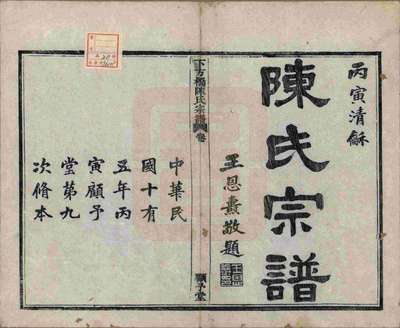 丙寅清龢
陳氏宗譜
王恩燾敬題
下方橋陳氏宗譜
卷
顧予堂
中華民
國十有
五年丙
寅顧予
堂第九
次脩本